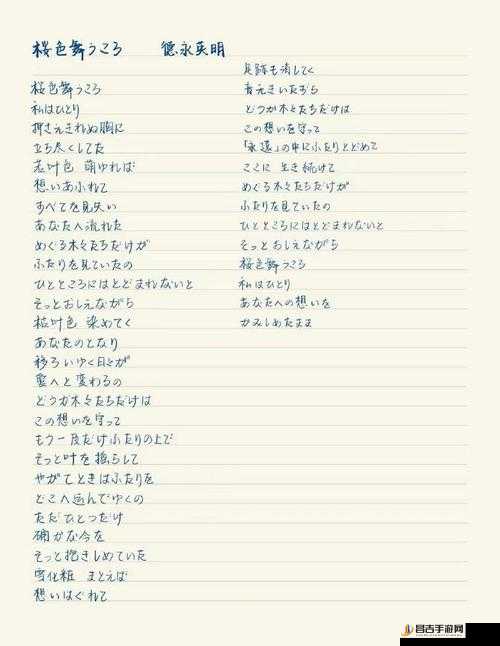 桜色舞うころ 徳永英明
桜色舞うころ
私はひとり
押さえきれぬ胸に
立ち尽くしてた
若叶色 萌ゆれば
想いあふれて
すべてを見失い
あなたへ流れた
めぐる木々たちだけが
ふたりを見ていたの
ひとところにはとどまれないと
そっとおしえながら
枯叶色 染めてく
あなたのとなり
移ろいゆく日々が
愛へと変わるの
どうか木々たちだけは
この想いを守って
もう一度だけふたりの上で
そっと叶を揺らして
やがてときはふたりを
どこへ运んでゆくの
ただひとつだけ
確かな今を
そっと抱きしめていた
雪化粧 まとえば
想いはぐれて
足跡も消してく
音えきいたずら
どうか木々たちだけは
この想いを守って
「永遠」の中にふたりとどめて
ここに 生き続けて
めぐる木々たちだけが
ふたりを見ていたの
ひとところにはとどまれないと
そっとおしえながら
桜色舞うころ
私はひとり
あなたへの想いを
かみしめたまま
昌吉手游网